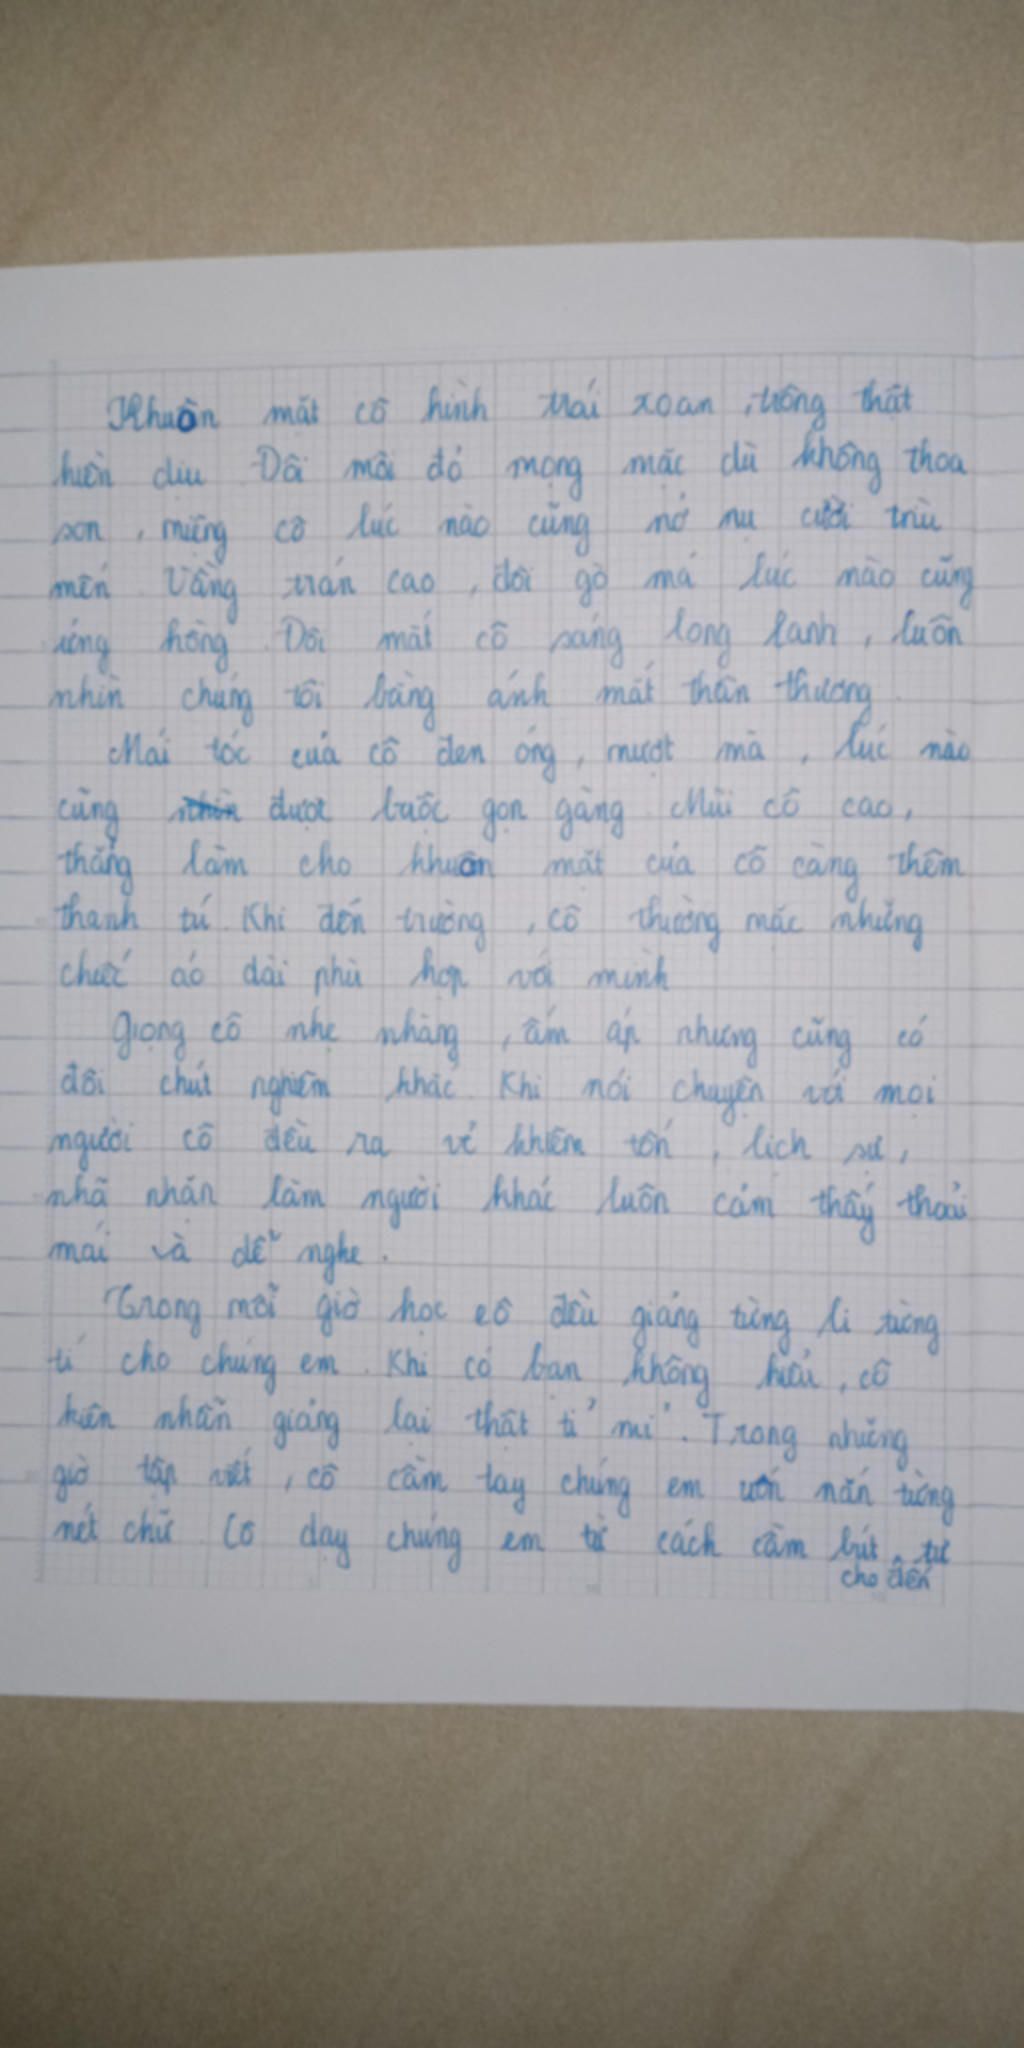 Khuôn mặt cô hình trái xoan, trông thật
hiền dịu. Đôi môi đỏ mọng mặc dù không thoa
son, miệng cô lúc nào cũng nở nụ cười trìu
mến. Vầng trán cao, đôi gò má lúc nào cũng
ửng hồng. Đôi mắt cô sáng long lanh, luôn
nhìn chúng tôi bằng ánh mắt thân thương.
Mái tóc của cô đen óng, mượt mà, lúc nào
cũng được buộc gọn gàng. Mũi cô cao,
thẳng làm cho khuôn mặt của cô càng thêm
thanh tú. Khi đến trường, cô thường mặc những
chiếc áo dài phù hợp với mình
Giọng cô nhẹ nhàng, ấm áp nhưng cũng có
đôi chút nghiêm khắc. Khi nói chuyện với mọi
người cô đều ra vẻ khiêm tốn, lịch sự,
nhã nhặn làm người khác luôn cảm thấy thoải
mái và dễ nghe.
Trong mỗi giờ học cô đều giảng từng li từng
tí cho chúng em. Khi có bạn không hiểu, cô
kiên nhẫn giảng lại thật tỉ mỉ. Trong những
giờ tập viết, cô cầm tay chúng em uốn nắn từng
nét chữ. Cô dạy chúng em từ cách cầm bút, tư
cho đến